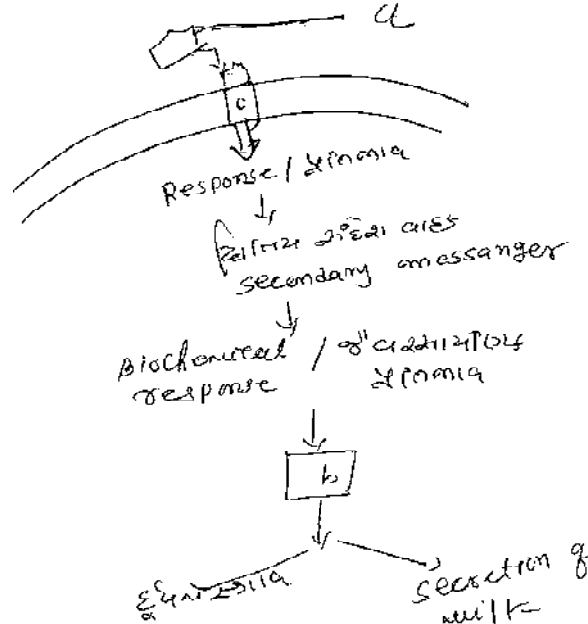 a
c
Response / પ્રતિભાવ
દ્વિતિય સંદેશા વાહક
secondary messanger
Biochemical / જૈવરસાયણિક
response પ્રતિભાવ
b
દૂધનો સ્ત્રાવ secretion of
milk